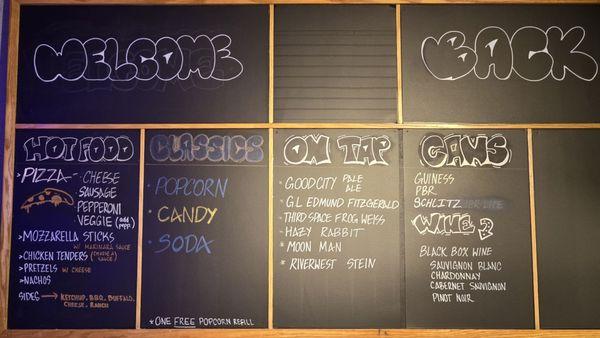 WELCOME
BACK
HOT FOOD
PIZZA - CHEESE
· SAUSAGE
· PEPPERONI
· VEGGIE (add pepp)
>MOZZARELLA STICKS
W/ MARINARA SAUCE
>CHICKEN TENDERS
>PRETZELS W/ CHEESE
>NACHOS
SIDES → KETCHUP, BBQ, BUFFALO,
CHEESE, RANCH
CLASSICS
· POPCORN
· CANDY
· SODA
*ONE FREE POPCORN REFILL
ON TAP
· GOOD CITY PALE
ALE
· G.L. EDMUND FITZGERALD
· THIRD SPACE FROG WEISS
· HAZY RABBIT
* MOON MAN
* RIVERWEST STEIN
CANS
GUINESS
PBR
SCHLITZ
WINE
BLACK BOX WINE
SAUVIGNON BLANC
CHARDONNAY
CABERNET SAUVIGNON
PINOT NOIR